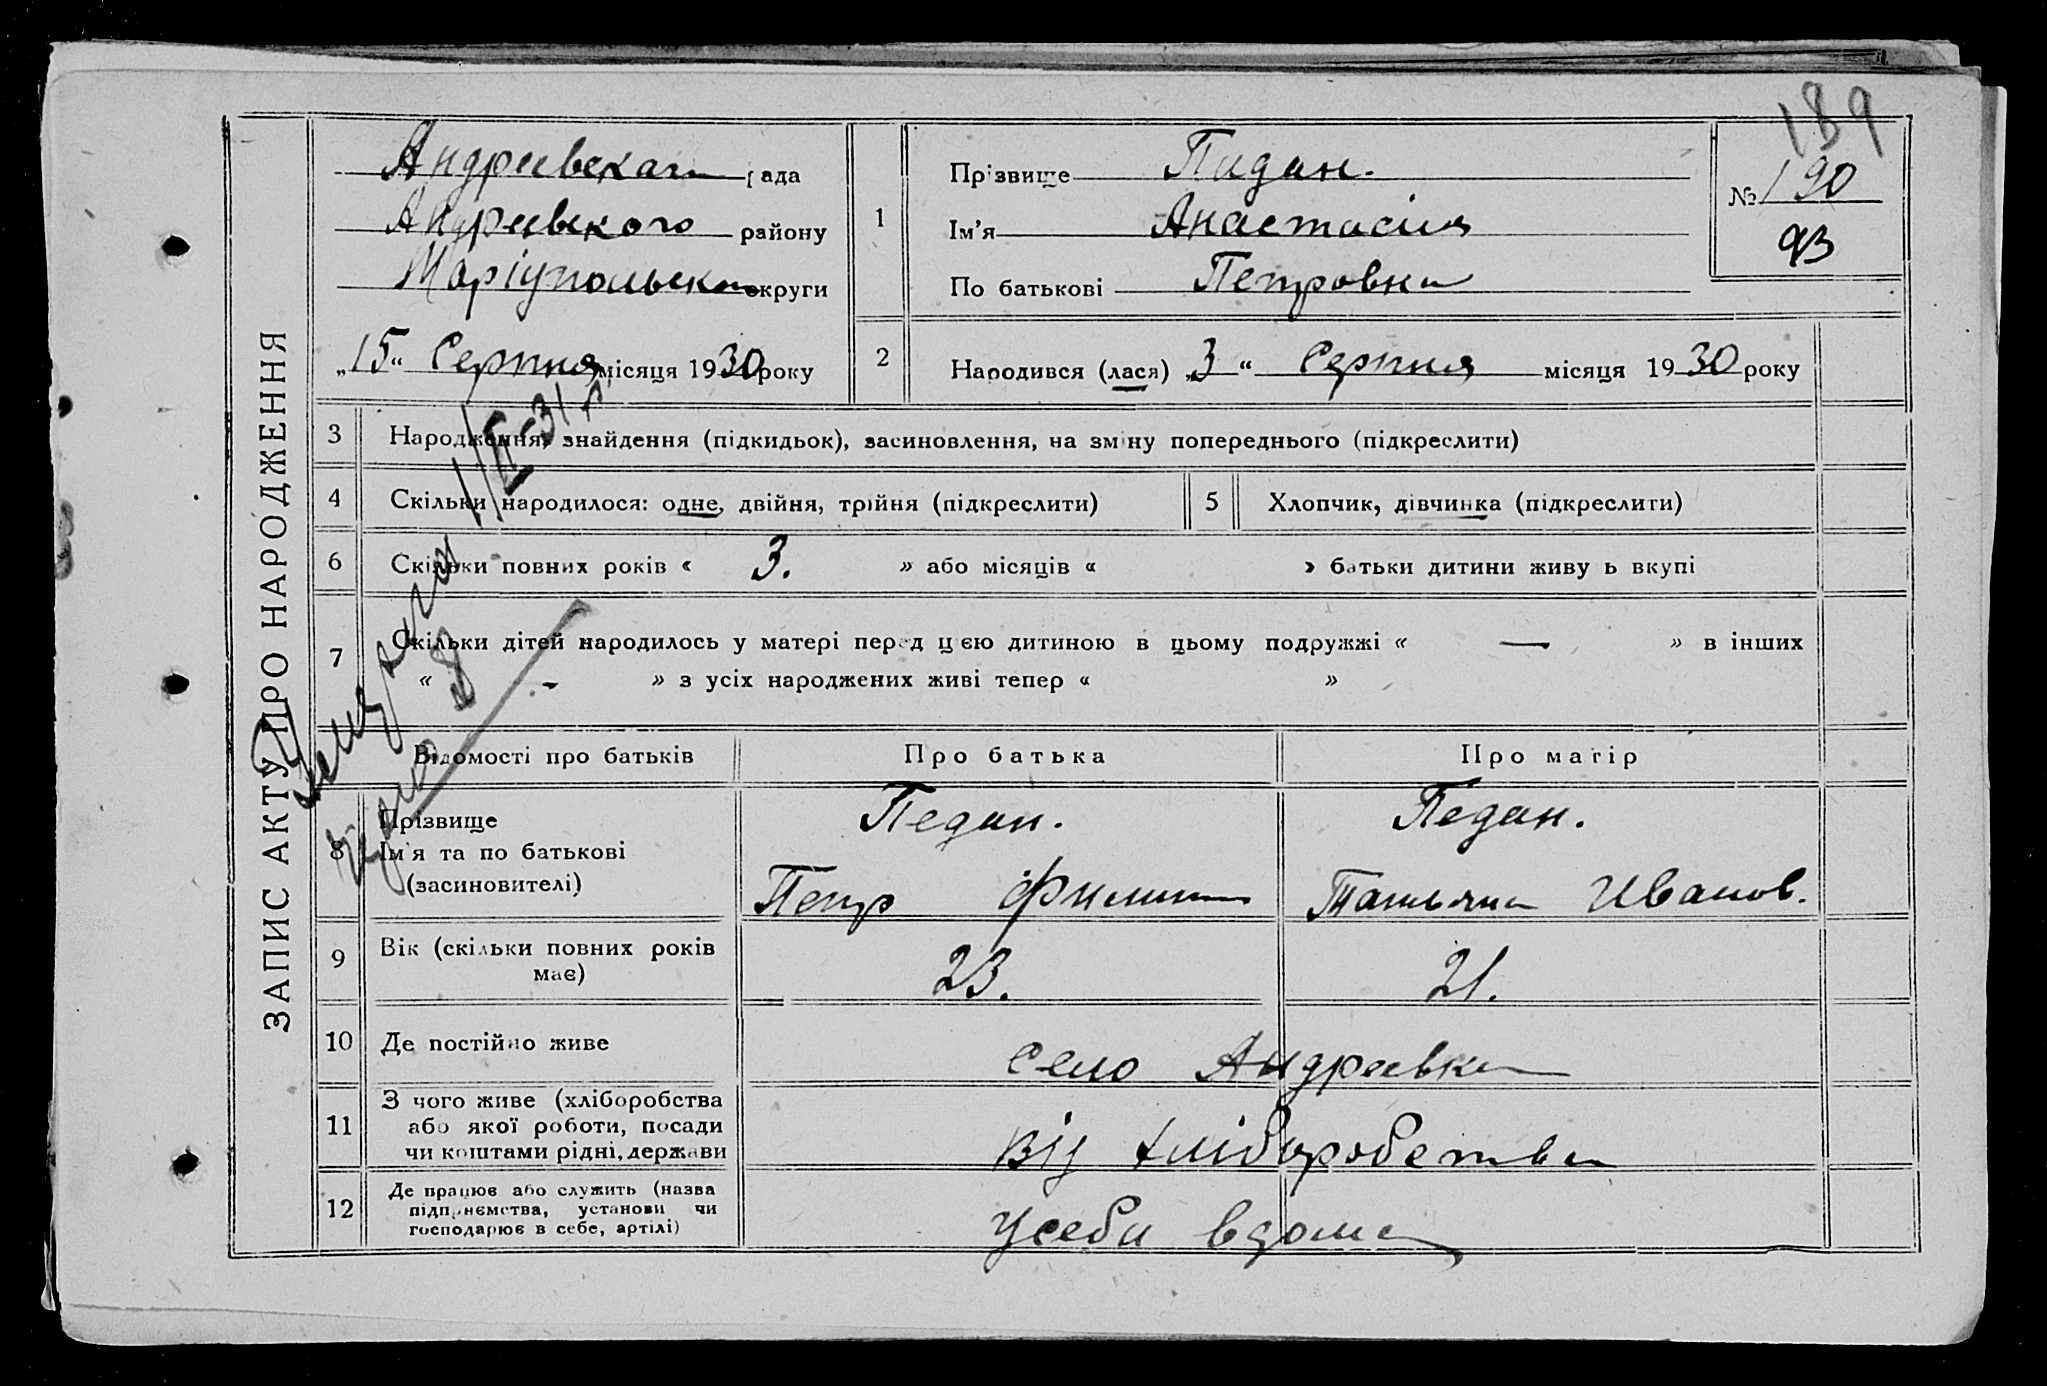 189
ЗАПИС АКТУ ПРО НАРОДЖЕННЯ
Андреевская рада
Андреевского району
Маріупольської округи
„15“ Серпня місяця 1930 року
1
Прізвище Пидан.
Ім'я Анастасия
По батькові Петровна
№ 190
93
2
Народився (лася) „3“ Серпня місяця 1930 року
3 Народження, знайдення (підкидьок), засиновлення, на зміну попереднього (підкреслити)
4 Скільки народилося: одне, двійня, трійня (підкреслити)
5 Хлопчик, дівчинка (підкреслити)
6 Скільки повних років « 3. » або місяців « » батьки дитини живуть вкупі
7 Скільки дітей народилось у матері перед цією дитиною в цьому подружжі « — » в інших
« - » з усіх народжених живі тепер « »
Відомості про батьків Про батька Про матір
8 Прізвище
Ім'я та по батькові
(засиновителі)
Педан. Педан.
Петр Филип Татьяна Иванов.
9 Вік (скільки повних років
має)
23. 21.
10 Де постійно живе село Андреевка
11 З чого живе (хліборобства
або якої роботи, посади
чи коштами рідні, держави
від хліборобства
12 Де працює або служить (назва
підприємства, установи чи
господарює в себе, артілі)
Усеби вдома